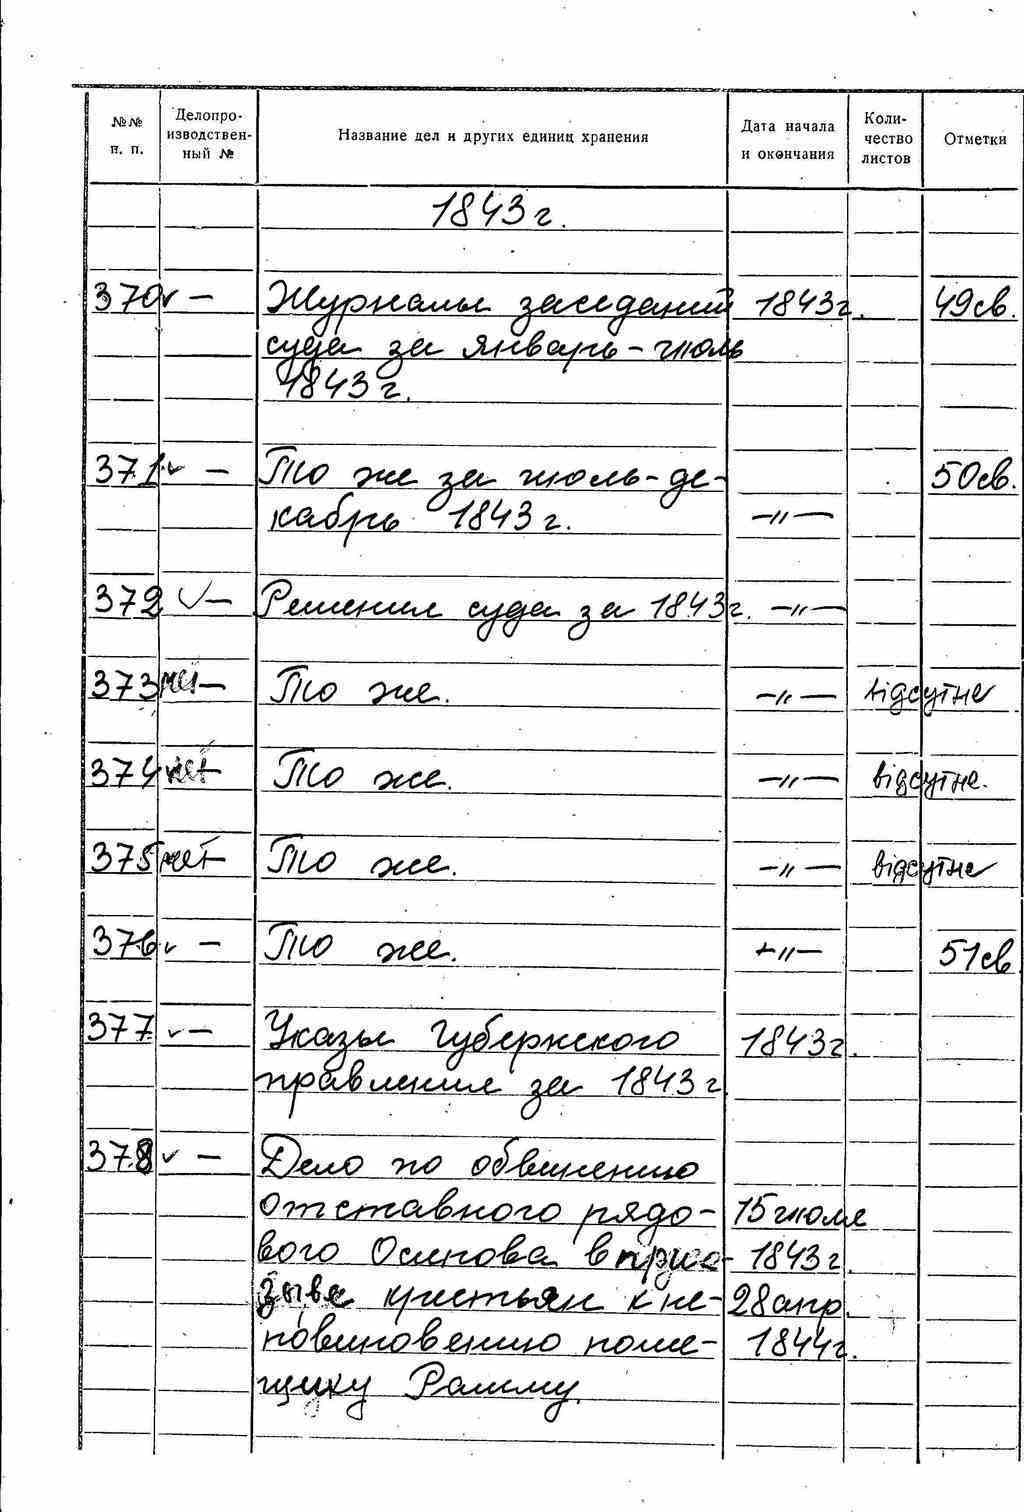 №№ п. п. Делопро- изводствен- ный № Название дел и других единиц хранения Дата начала и окончания Коли- чество листов Отметки
1843 г.
370 ✓ — Журналы заседаний 1843 г. 49 св.
суда за январь – июль
1843 г.
371 ✓ — То же за июль – де-
50 св.
кабрь 1843 г. —〃—
372 ✓ — Решения суда за 1843 г. —〃—
373 нет — То же. —〃— відсутне
374 нет — То же. —〃— відсутне.
375 нет — То же. —〃— відсутне
376 ✓ — То же. —〃— 51 св
377 ✓ — Указы Губернского 1843 г.
правления за 1843 г.
378 ✓ — Дело по обвинению
отставного рядо- 15 июля
вого Осипова в при- 1843 г.
зыве крестьян к не- 28 апр.
повиновению поме- 1844 г.
щику Рамму.